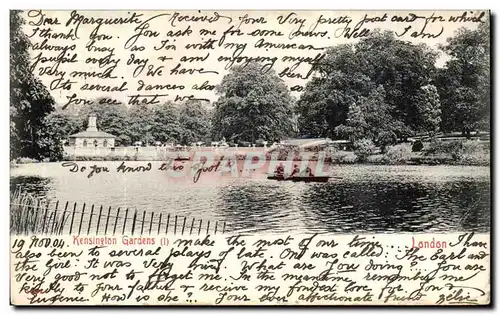 Dear Marguerite Received your very pretty post card for which
I thank you. You ask me for some news. Well I am,
always busy as I'm with my American
pupil every day & am enjoying myself
very much. We have been
to several dances also
you see that
Do you know this spot
CPARAMA
19 Nov 04. Kensington Gardens (I) London
make the most of our time I have
also been to several plays of late. One was called: The Earl and
the girl. It was very What are you doing? you are
very good not to forget me. In the meantime remember me
kindly to your father & receive my fondest love for you &
Eugenie How is she? Your ever affectionate friend Zelie